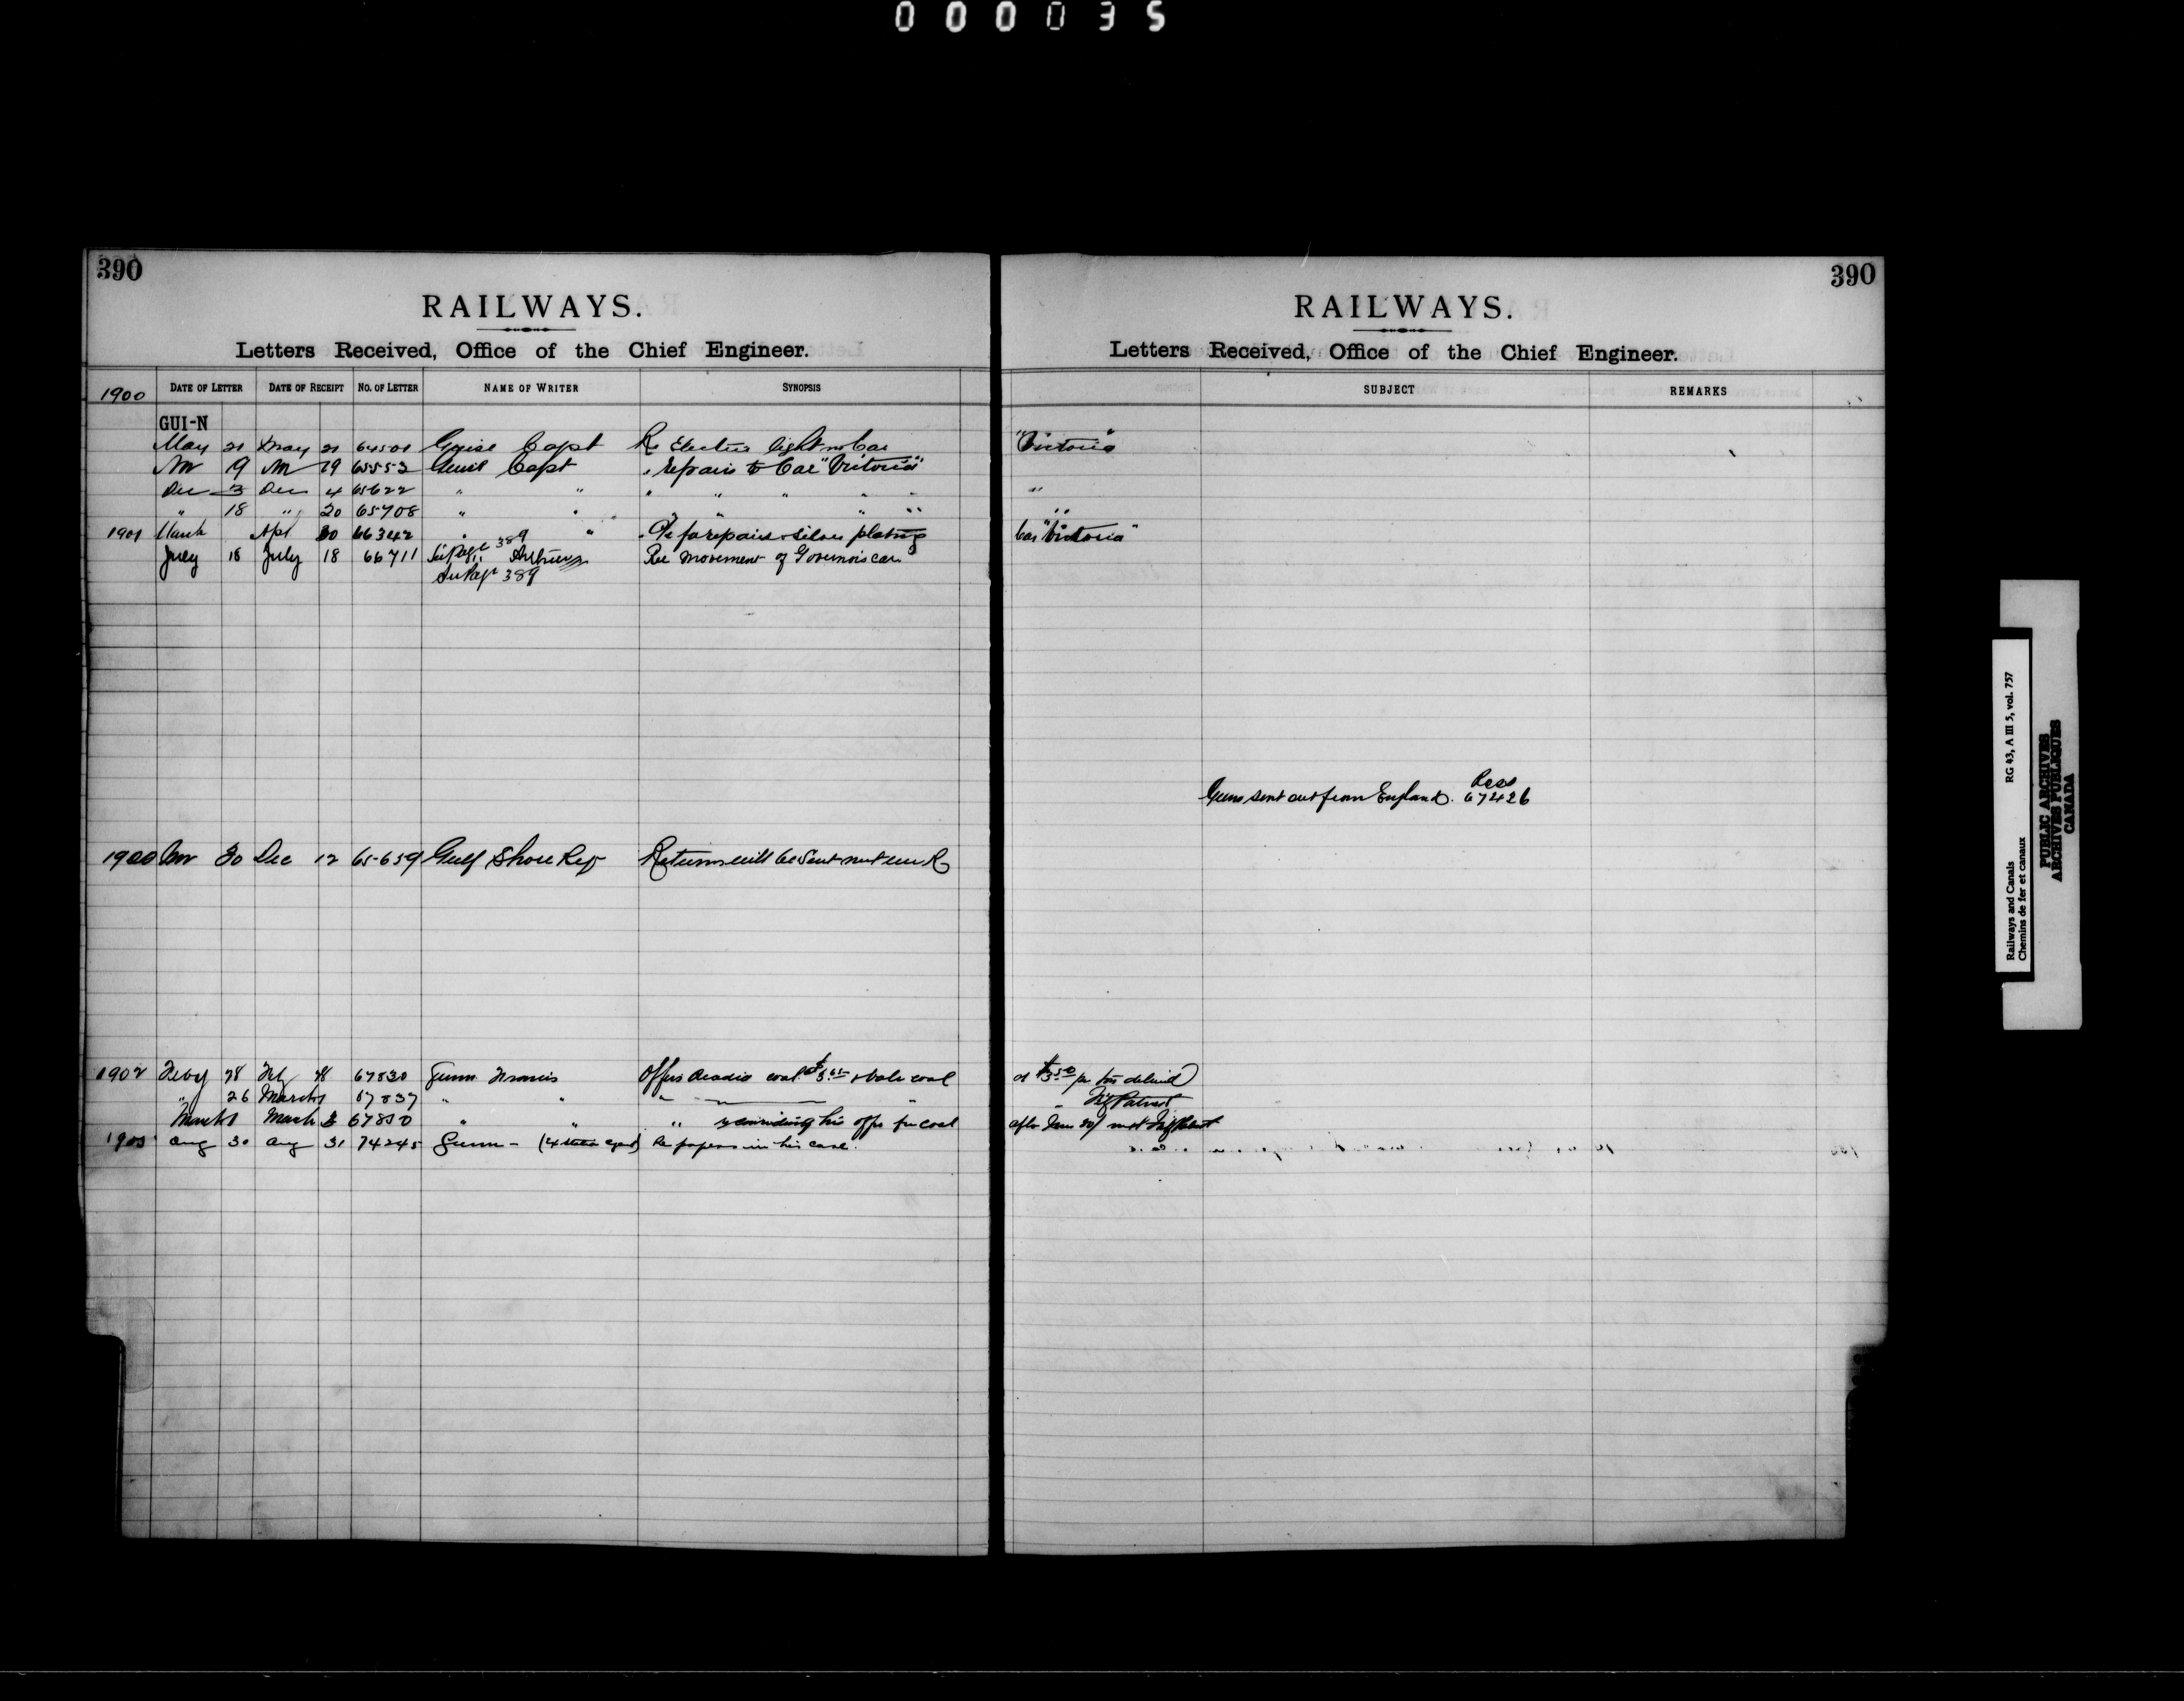 000035
390
RAILWAYS.
Letters Received, Office of the Chief Engineer.
1900 DATE OF LETTER DATE OF RECEIPT NO. OF LETTER NAME OF WRITER SYNOPSIS
GUI-N
May 21 May 21 64501 Guise Capt Re Electric light in Car
Nov 19 Nov 19 65553 Guise Capt " repairs to Car "Victoria"
Dec 3 Dec 4 65622 " " " " " " "
" 18 " 20 65708 " " " " " "
1901 March Apl 30 66342 " " " repairs silver plating
July 18 July 18 66711 See page 389 Re movement of Governors car
See Page 389
1900 Nov 30 Dec 12 65659 Gulf Shore Rly Returns will be sent
1902 Feby 28 Feb 28 67830 Gunn Francis Offers Acadia coal
" 26 March 1 67837 " " "
March 1 March 3 67850 " " " his offer for coal
1903 Aug 30 Aug 31 74245 Gunn - Re papers in his case.
390
RAILWAYS.
Letters Received, Office of the Chief Engineer.
SUBJECT REMARKS
"Victoria"
"
" "
Car "Victoria"
Guns sent out from England. 67426
at $3.50 per ton
"
after
Railways and Canals RG 43, A III 5, vol. 757
Chemins de fer et canaux
PUBLIC ARCHIVES
ARCHIVES PUBLIQUES
CANADA